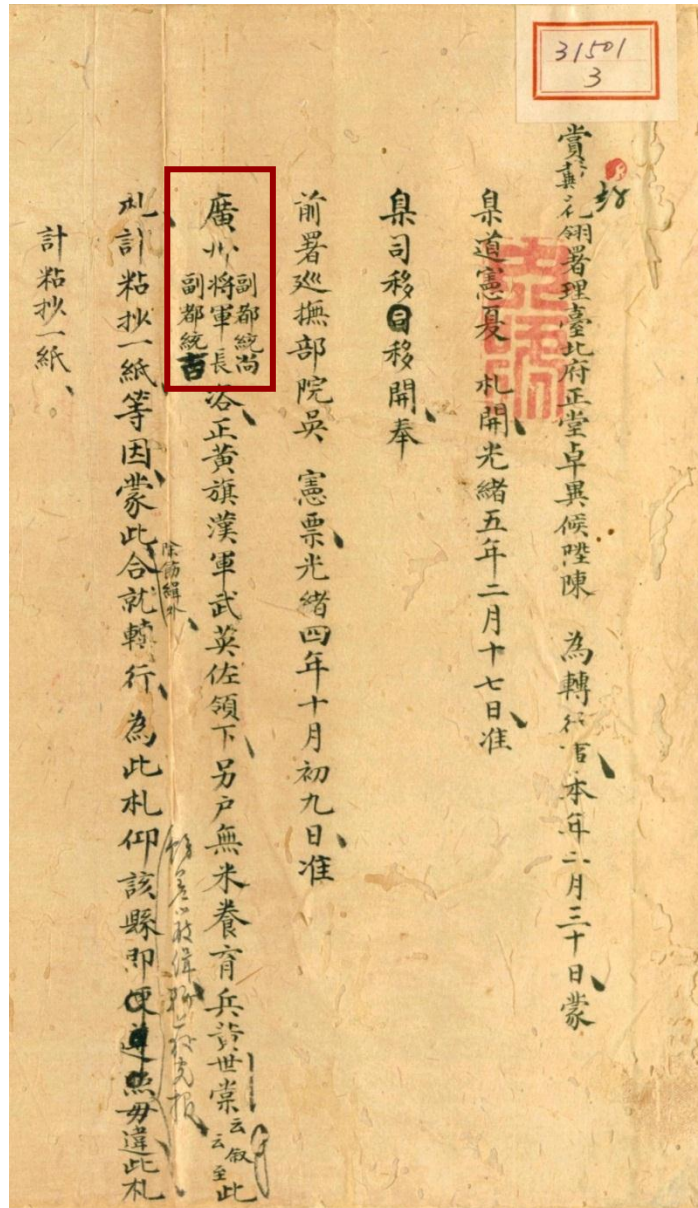 31501
3
賞戴花翎署理臺北府正堂卓異候陞陳 為轉行事、本年二月三十日、蒙
臬道憲夏 札開、光緒五年二月十七日、准
臬司移移開、奉
前署巡撫部院吳 憲票、光緒四年十月初九日、准
廣州將軍長 副都統尚 副都統吉 咨、正黃旗漢軍武英佐領下、另戶無米養育兵黃世棠云云叙至此
札、計粘抄一紙等因、蒙此、除飭緝外、合就轉行、為此札仰該縣即便遵照毋違此札、
計粘抄一紙、